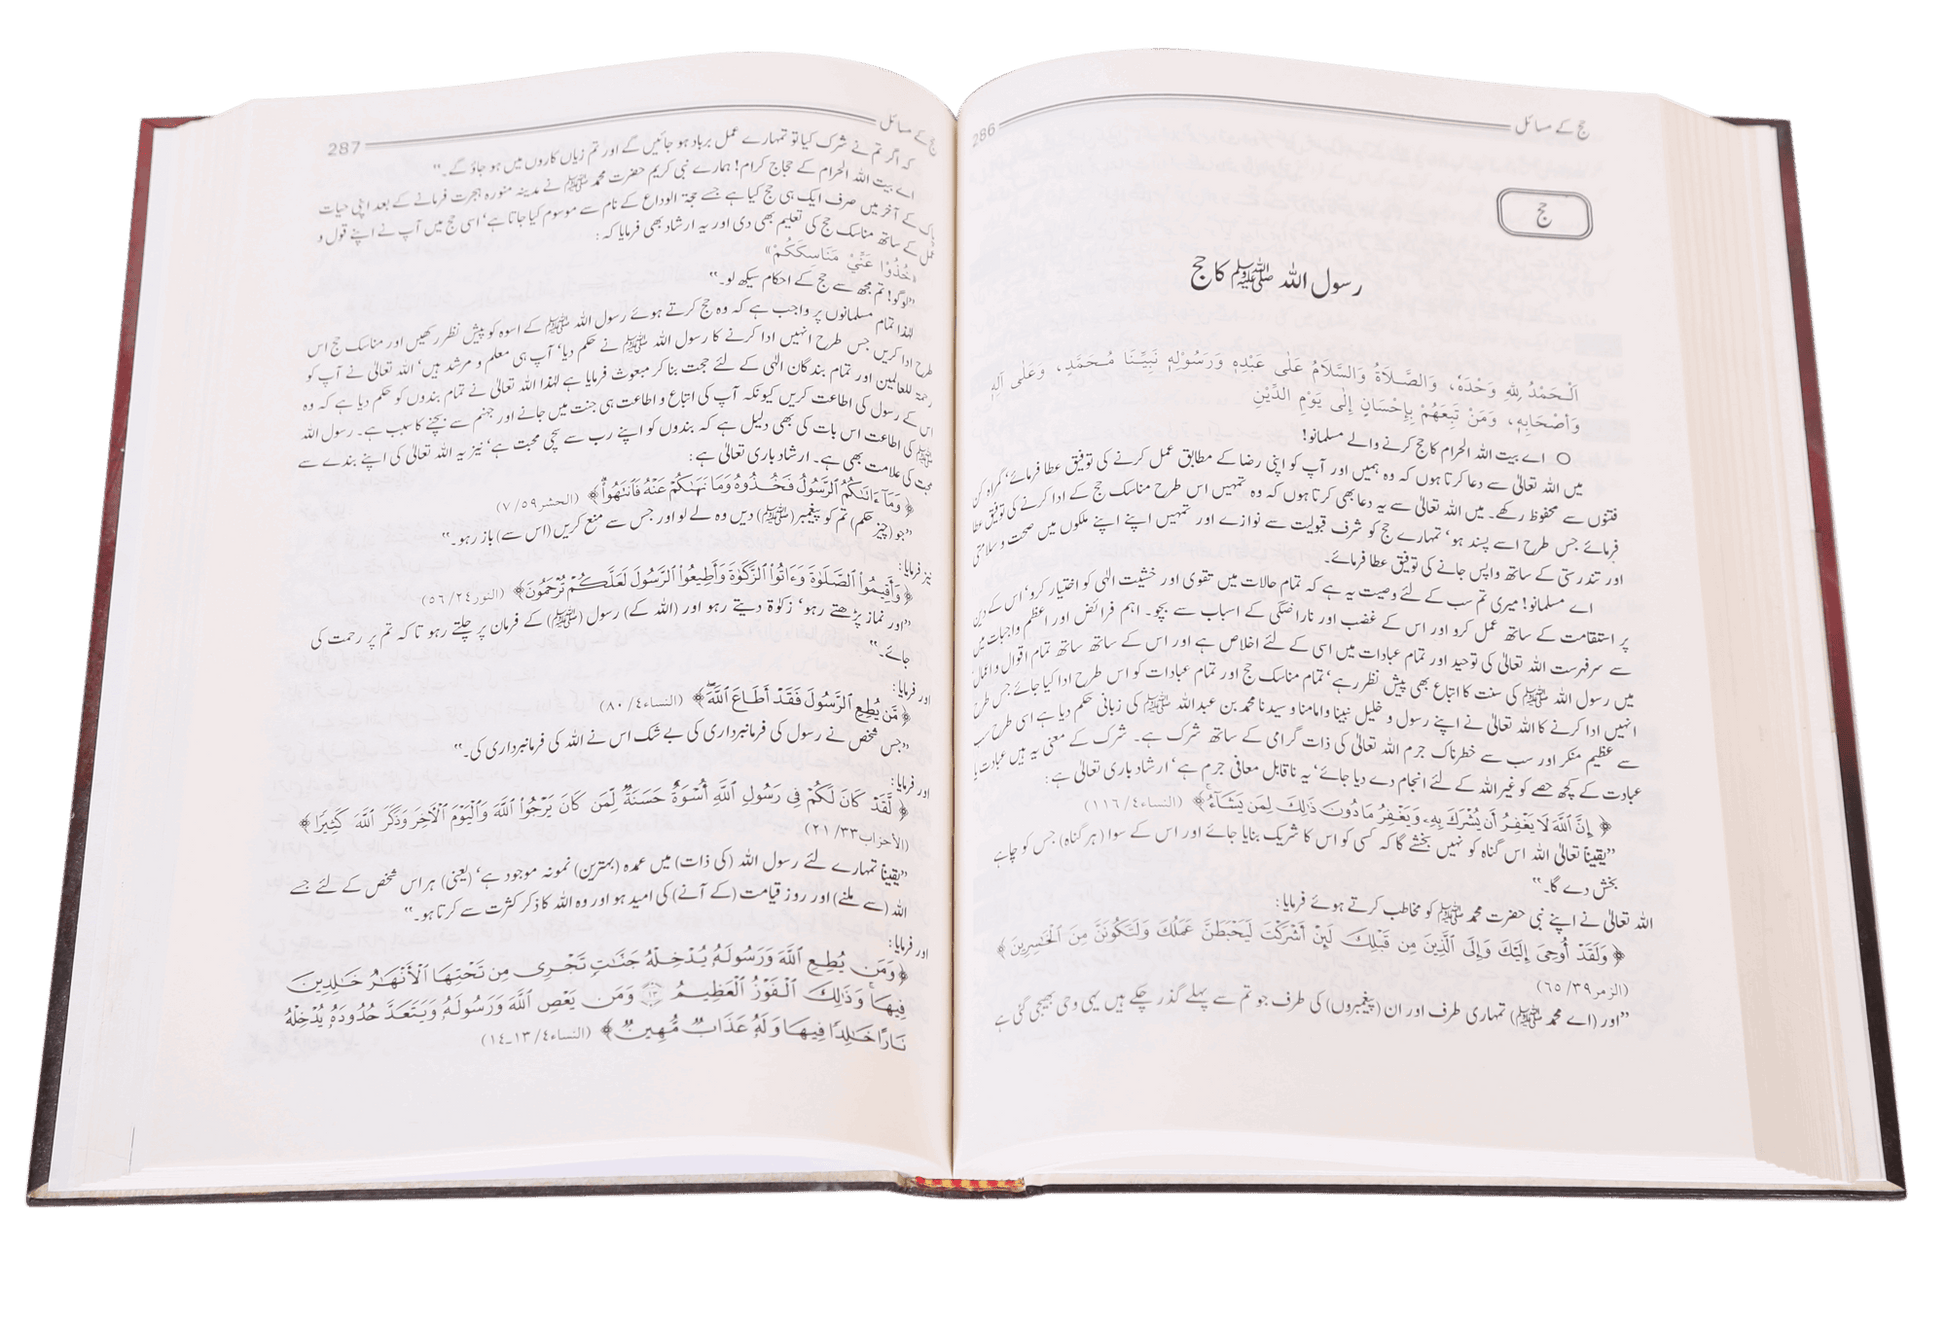 حج کے مسائل 286
حج
رسول اللہ ﷺ کا حج
اَلْحَمْدُ لِلّٰهِ وَحْدَهُ، وَالصَّلَاةُ وَالسَّلَامُ عَلٰى عَبْدِهٖ وَرَسُوْلِهٖ نَبِيِّنَا مُحَمَّدٍ، وَعَلٰى اٰلِهٖ
وَأَصْحَابِهٖ، وَمَنْ تَبِعَهُمْ بِإِحْسَانٍ إِلٰى يَوْمِ الدِّيْنِ
○ اے بیت اللہ الحرام کا حج کرنے والے مسلمانو!
میں اللہ تعالیٰ سے دعا کرتا ہوں کہ وہ ہمیں اور آپ کو اپنی رضا کے مطابق عمل کرنے کی توفیق عطا فرمائے‘ گمراہ کن
فتنوں سے محفوظ رکھے۔ میں اللہ تعالیٰ سے یہ دعا بھی کرتا ہوں کہ وہ تمہیں اس طرح مناسک حج کے ادا کرنے کی توفیق عطا
فرمائے جس طرح اسے پسند ہو‘ تمہارے حج کو شرف قبولیت سے نوازے اور تمہیں اپنے اپنے ملکوں میں صحت و سلامتی
اور تندرستی کے ساتھ واپس جانے کی توفیق عطا فرمائے۔
اے مسلمانو! میری تم سب کے لئے وصیت یہ ہے کہ تمام حالات میں تقویٰ اور خشیت الٰہی کو اختیار کرو‘ اس کے دین
پر استقامت کے ساتھ عمل کرو اور اس کے غضب اور ناراضگی کے اسباب سے بچو۔ اہم فرائض اور اعظم واجبات میں
سے سرفہرست اللہ تعالیٰ کی توحید اور تمام عبادات میں اسی کے لئے اخلاص ہے اور اس کے ساتھ ساتھ تمام اقوال و اعمال
میں رسول اللہ ﷺ کی سنت کا اتباع بھی پیش نظر رہے‘ تمام مناسک حج اور تمام عبادات کو اس طرح ادا کیا جائے جس طرح
انہیں ادا کرنے کا اللہ تعالیٰ نے اپنے رسول و خلیل نبینا وامامنا و سیدنا محمد بن عبداللہ ﷺ کی زبانی حکم دیا ہے اسی طرح سب
سے عظیم منکر اور سب سے خطرناک جرم اللہ تعالیٰ کی ذات گرامی کے ساتھ شرک ہے۔ شرک کے معنی یہ ہیں عبادت یا
عبادت کے کچھ حصے کو غیر اللہ کے لئے انجام دے دیا جائے‘ یہ ناقابل معافی جرم ہے‘ ارشاد باری تعالیٰ ہے:
﴿ إِنَّ ٱللَّهَ لَا يَغْفِرُ أَن يُشْرَكَ بِهِۦ وَيَغْفِرُ مَا دُونَ ذَٰلِكَ لِمَن يَشَآءُ ﴾ (النساء۴/۱۱۶)
”یقیناً تعالیٰ اللہ اس گناہ کو نہیں بخشے گا کہ کسی کو اس کا شریک بنایا جائے اور اس کے سوا (ہر گناہ) جس کو چاہے
بخش دے گا۔“
اللہ تعالیٰ نے اپنے نبی حضرت محمد ﷺ کو مخاطب کرتے ہوئے فرمایا:
﴿ وَلَقَدْ أُوحِىَ إِلَيْكَ وَإِلَى ٱلَّذِينَ مِن قَبْلِكَ لَئِنْ أَشْرَكْتَ لَيَحْبَطَنَّ عَمَلُكَ وَلَتَكُونَنَّ مِنَ ٱلْخَٰسِرِينَ ﴾
(الزمر۳۹/۶۵)
”اور (اے محمد ﷺ) تمہاری طرف اور ان (پیغمبروں) کی طرف جو تم سے پہلے گذر چکے ہیں یہی وحی بھیجی گئی ہے
حج کے مسائل 287
کہ اگر تم نے شرک کیا تو تمہارے عمل برباد ہو جائیں گے اور تم زیاں کاروں میں ہو جاؤ گے۔“
اے بیت اللہ الحرام کے حجاج کرام! ہمارے نبی کریم حضرت محمد ﷺ نے مدینہ منورہ ہجرت فرمانے کے بعد اپنی حیات
پاک کے آخر میں صرف ایک ہی حج کیا ہے جسے حجۃ الوداع کے نام سے موسوم کیا جاتا ہے‘ اسی حج میں آپ نے اپنے قول و
عمل کے ساتھ مناسک حج کی تعلیم بھی دی اور یہ ارشاد بھی فرمایا کہ:
«خُذُوْا عَنِّيْ مَنَاسِكَكُمْ»
”لوگو! تم مجھ سے حج کے احکام سیکھ لو۔“
لہٰذا تمام مسلمانوں پر واجب ہے کہ وہ حج کرتے ہوئے رسول اللہ ﷺ کے اسوہ کو پیش نظر رکھیں اور مناسک حج اس
طرح ادا کریں جس طرح انہیں ادا کرنے کا رسول اللہ ﷺ نے حکم دیا‘ آپ ہی معلم و مرشد ہیں‘ اللہ تعالیٰ نے آپ کو
رحمۃ للعالمین اور تمام بندگان الٰہی کے لئے حجت بنا کر مبعوث فرمایا ہے لہٰذا اللہ تعالیٰ نے تمام بندوں کو حکم دیا ہے کہ وہ
اس کے رسول کی اطاعت کریں کیونکہ آپ کی اتباع و اطاعت ہی جنت میں جانے اور جہنم سے بچنے کا سبب ہے۔ رسول اللہ
ﷺ کی اطاعت اس بات کی بھی دلیل ہے کہ بندوں کو اپنے رب سے سچی محبت ہے‘ نیز یہ اللہ تعالیٰ کی اپنے بندے سے
محبت کی علامت بھی ہے۔ ارشاد باری تعالیٰ ہے:
﴿ وَمَآ ءَاتَىٰكُمُ ٱلرَّسُولُ فَخُذُوهُ وَمَا نَهَىٰكُمْ عَنْهُ فَٱنتَهُوا۟ ﴾ (الحشر۵۹/۷)
”جو (چیز حکم) تم کو پیغمبر (ﷺ) دیں وہ لے لو اور جس سے منع کریں (اس سے) باز رہو۔“
نیز فرمایا:
﴿وَأَقِيمُوا۟ ٱلصَّلَوٰةَ وَءَاتُوا۟ ٱلزَّكَوٰةَ وَأَطِيعُوا۟ ٱلرَّسُولَ لَعَلَّكُمْ تُرْحَمُونَ﴾ (النور۲۴/۵۶)
”اور نماز پڑھتے رہو‘ زکوٰۃ دیتے رہو اور (اللہ کے) رسول (ﷺ) کے فرمان پر چلتے رہو تا کہ تم پر رحمت کی
جائے۔“
اور فرمایا:
﴿ مَّن يُطِعِ ٱلرَّسُولَ فَقَدْ أَطَاعَ ٱللَّهَ ﴾ (النساء۴/۸۰)
”جس شخص نے رسول کی فرمانبرداری کی بے شک اس نے اللہ کی فرمانبرداری کی۔“
اور فرمایا:
﴿ لَّقَدْ كَانَ لَكُمْ فِى رَسُولِ ٱللَّهِ أُسْوَةٌ حَسَنَةٌ لِّمَن كَانَ يَرْجُوا۟ ٱللَّهَ وَٱلْيَوْمَ ٱلْأَخِرَ وَذَكَرَ ٱللَّهَ كَثِيرًا ﴾
(الأحزاب۳۳/۲۱)
”یقیناً تمہارے لئے رسول اللہ (کی ذات) میں عمدہ (بہترین) نمونہ موجود ہے‘ (یعنی) ہر اس شخص کے لئے جسے
اللہ (سے ملنے) اور روز قیامت (کے آنے) کی امید ہو اور وہ اللہ کا ذکر کثرت سے کرتا ہو۔“
اور فرمایا:
﴿وَمَن يُطِعِ ٱللَّهَ وَرَسُولَهُۥ يُدْخِلْهُ جَنَّٰتٍ تَجْرِى مِن تَحْتِهَا ٱلْأَنْهَٰرُ خَٰلِدِينَ
فِيهَا وَذَٰلِكَ ٱلْفَوْزُ ٱلْعَظِيمُ ۝١٣ وَمَن يَعْصِ ٱللَّهَ وَرَسُولَهُۥ وَيَتَعَدَّ حُدُودَهُۥ يُدْخِلْهُ
نَارًا خَٰلِدًا فِيهَا وَلَهُۥ عَذَابٌ مُّهِينٌ﴾ (النساء۴/۱۳۔۱۴)